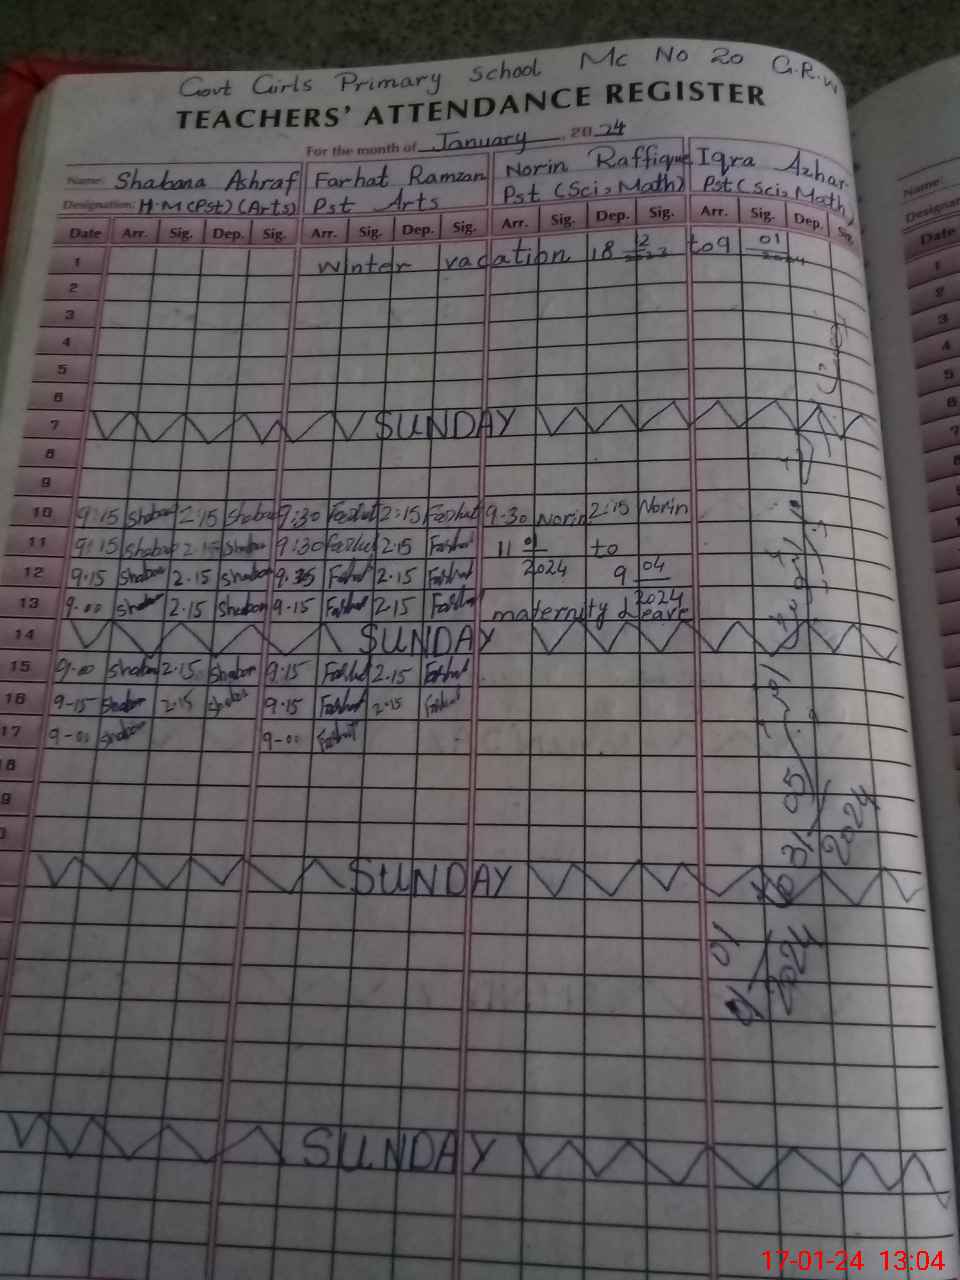 Govt Girls Primary School Mc No 20 G.R.W
TEACHERS' ATTENDANCE REGISTER
For the month of January, 2024
Name: Shabana Ashraf Farhat Ramzan Norin Raffique Iqra Azhar
Designation: H.M(Pst)(Arts) Pst Arts Pst (Sci, Math) Pst (Sci, Math)
Date Arr. Sig. Dep. Sig. Arr. Sig. Dep. Sig. Arr. Sig. Dep. Sig. Arr. Sig. Dep. Sig.
1 winter vacation 18 12 2023 to 9 01 2024
2
3
4
5
6
7 SUNDAY
8
9
10 9:15 Shaban 2:15 Shaban 9:30 Farhat 2:15 Farhat 9-30 Norin 2:15 Norin
11 9:15 Shaban 2.15 Shaban 9:30 Farhat 2.15 Farhat 11 01 2024 to
12 9.15 Shaban 2.15 Shaban 9.35 Farhat 2.15 Farhat 9 04 2024
13 9.00 Shaban 2.15 Shaban 9.15 Farhat 2.15 Farhat maternity Leave
14 SUNDAY
15 9.00 Shaban 2.15 Shaban 9.15 Farhat 2.15 Farhat
16 9-15 Shaban 2.15 Shaban 9.15 Farhat 2.15 Farhat
17 9-00 Shaban 9-00 Farhat
18
9
0
SUNDAY
SUNDAY
9 01 2024 to 31 05 2024
Name:
Designat
Date
1
2
3
4
5
6
7
17-01-24 13:04